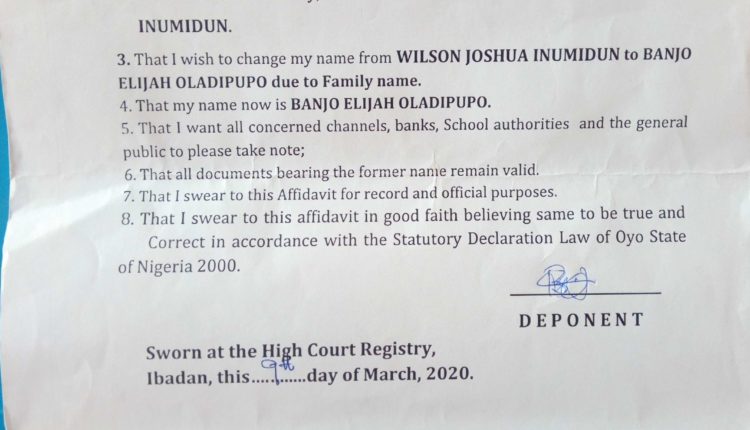 INUMIDUN.
3. That I wish to change my name from WILSON JOSHUA INUMIDUN to BANJO
ELIJAH OLADIPUPO due to Family name.
4. That my name now is BANJO ELIJAH OLADIPUPO.
5. That I want all concerned channels, banks, School authorities and the general
public to please take note;
6. That all documents bearing the former name remain valid.
7. That I swear to this Affidavit for record and official purposes.
8. That I swear to this affidavit in good faith believing same to be true and
Correct in accordance with the Statutory Declaration Law of Oyo State
of Nigeria 2000.
DEPONENT
Sworn at the High Court Registry,
Ibadan, this.....9th......day of March, 2020.